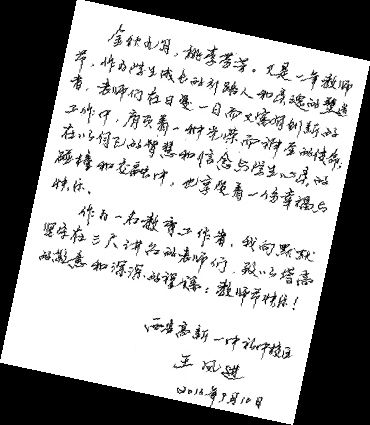 金秋九月，桃李芬芳。又是一年教师
节，作为学生成长的引路人和灵魂的塑造
者，老师们在日复一日而又富有创新的
工作中，肩负着一种光荣而神圣的使命，
在以何己的智慧和信念与学生心灵的
碰撞和交融中，也享受着一份幸福与
快乐。
作为一名教育工作者，我向默默
坚守在三尺讲台的老师们，致以崇高
的敬意和深深的祝福：教师节快乐！
西安高新一中初中校区
王凤进
2013年9月10日